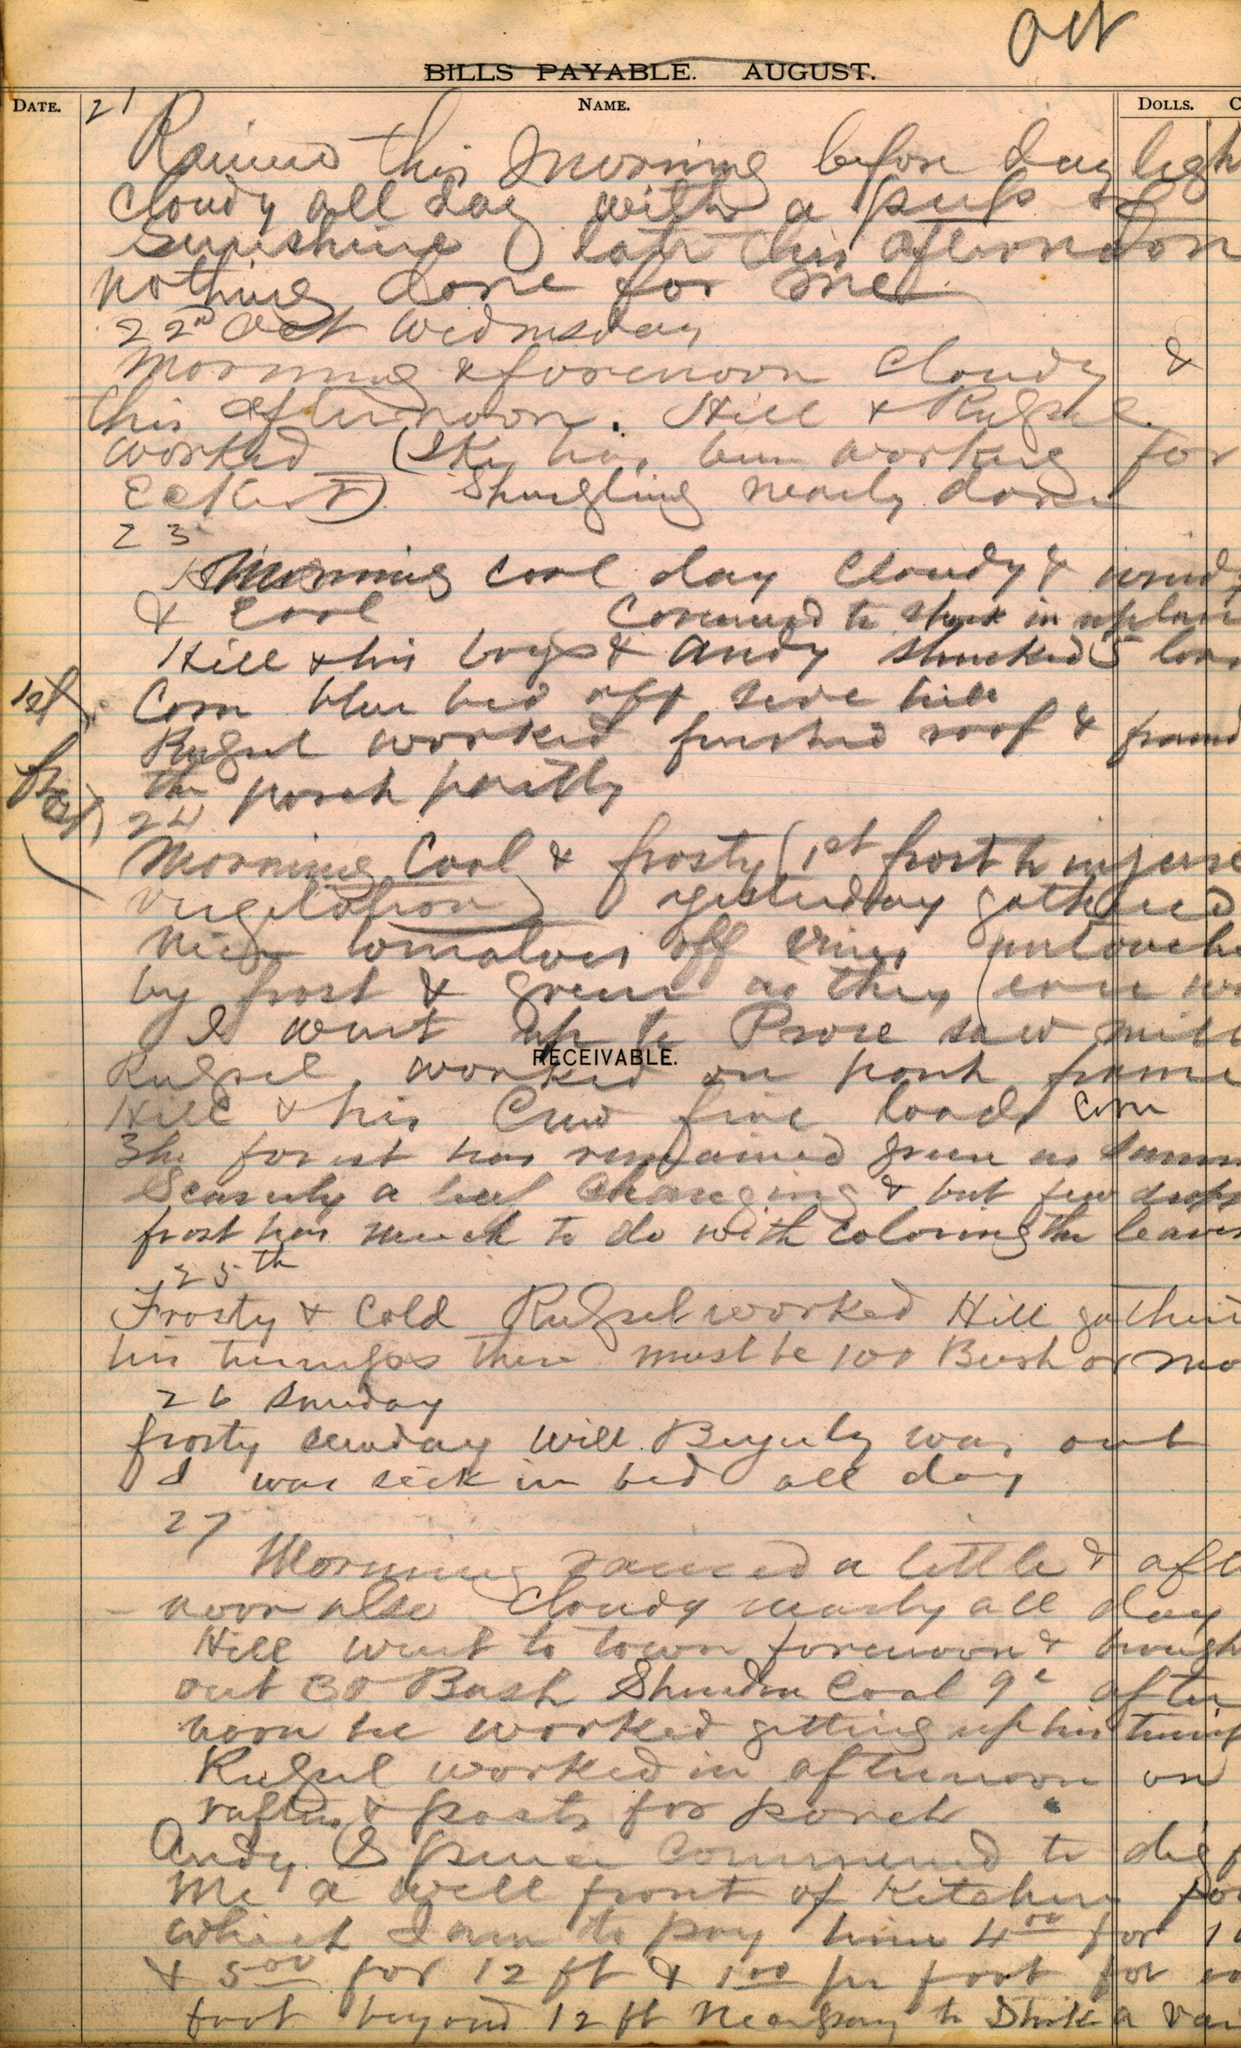 Oct
BILLS PAYABLE. AUGUST.
DATE. NAME. DOLLS. C
21
Rained this morning before day ligh
cloudy all day with a peep of
sunshine late this afternoon
nothing done for me
22nd Oct Wednesday
Morning & forenoon cloudy &
this afternoon. Hill & Rugsel
worked (Sky has been working for
Eckert) Shingling nearly done
23
Morning cool day cloudy & windy
& cool Comenced to shuck in
Hill & his boys & Andy shucked 5 loa
1st Corn blue bed off side hill
Rugsel worked finished roof & framd
the porch partly
24
Morning Cool & frosty (1st frost to injure
vegitation) yesterday gathered
nice tomatoes off vines untouche
by frost & green as they ever we
I went up to Prose saw mill
RECEIVABLE.
Rugsel worked on porch frame
Hill & his Crew five loads corn
The forest has remained green as summ
Scarcely a leaf changing & but few drops
frost has much to do with coloring the leaves
25th
Frosty & Cold Rugsel worked Hill gatherd
his turnips there must be 100 Bush or mo
26 Sunday
frosty sunday Will Beyerly was out
I was sick in bed all day
27
Morning rained a little & afte
noon also Cloudy nearly all day
Hill went to town forenoon & brough
out 30 Bush Coal 9c after
noon he worked getting up his turnip
Rugsel worked in afternoon on
rafters & posts for porch
Andy Commenced to dig f
me a well front of Kitchen for
which I am to pay him 4.00 for 10
& 5.00 for 12 ft & 1.00 per foot for ea
foot beyond 12 ft Necessary to Strike a vai